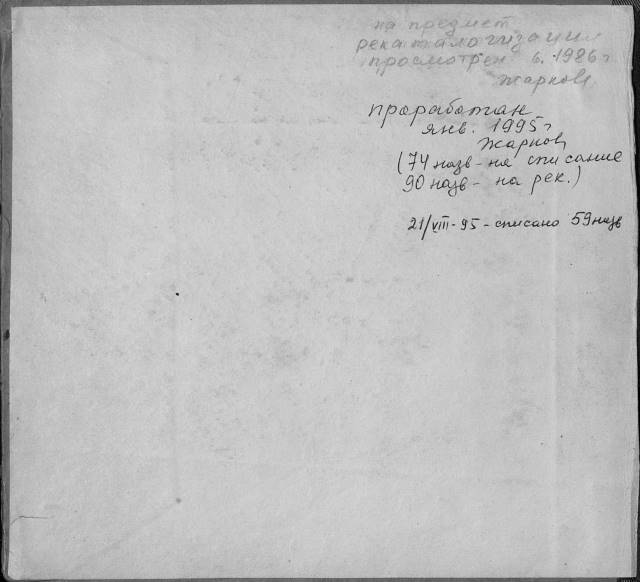 на предмет
рекаталогизации
просмотрен 6. 1986 г
Жарков
проработан
янв. 1995 г
Жарков
(74 назв - на списание
90 назв - на рек.)
21/VIII - 95 - списано 59 назв